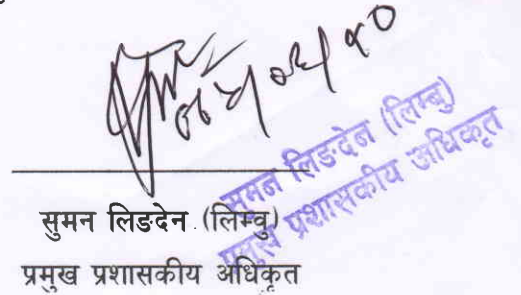 सुमन लिङदेन (लिम्बु)
प्रमुख प्रशासकीय अधिकृत
सुमन लिङदेन (लिम्वु)
प्रमुख प्रशासकीय अधिकृत